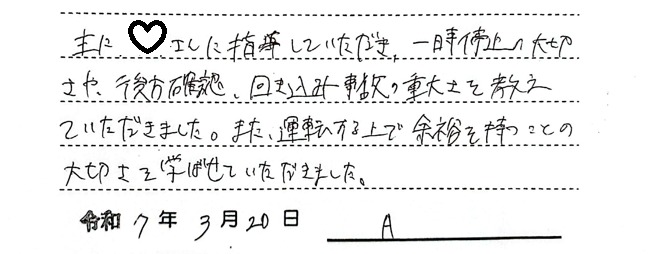 主に、♡さんに指導していただき、一時停止の大切
さや、後方確認、回き込み事故の重大さを教え
ていただきました。また、運転する上で余裕を持つことの
大切さを学ばせていただきました。
令和7年3月20日 A